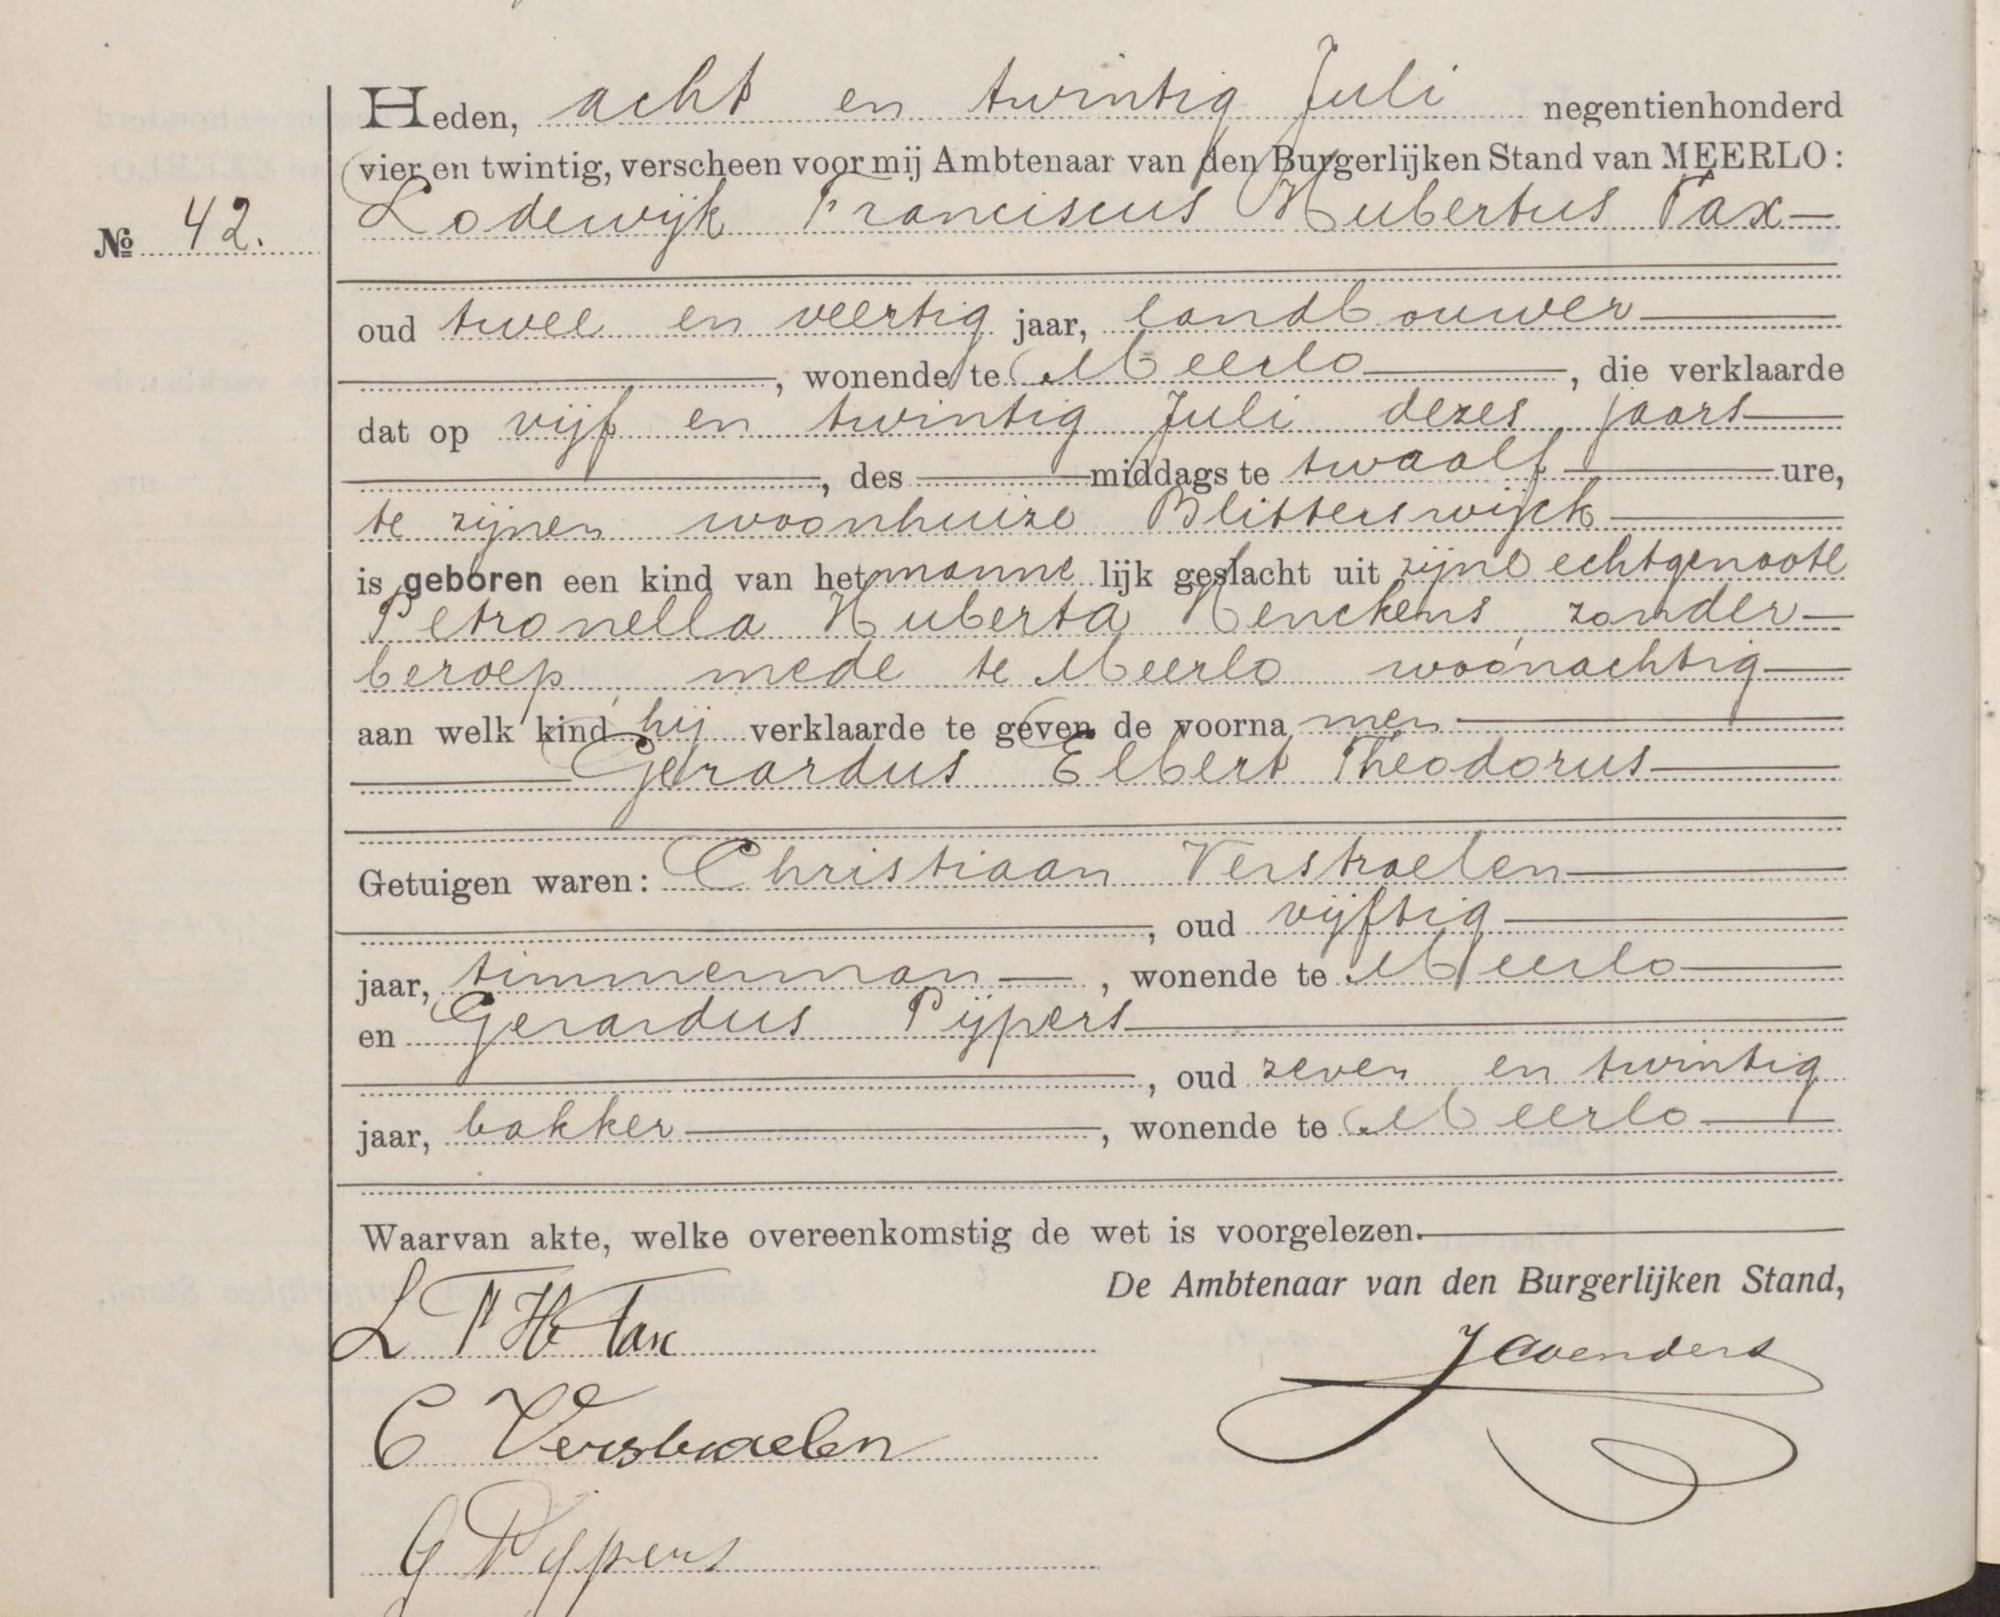 Heden, acht en twintig Juli negentienhonderd
vier en twintig, verscheen voor mij Ambtenaar van den Burgerlijken Stand van MEERLO:
№ 42.
Lodewijk Franciscus Hubertus Tax
oud twee en veertig jaar, landbouwer
, wonende te Meerlo, die verklaarde
dat op vijf en twintig Juli dezes jaars
, des middags te twaalf ure,
te zijnen woonhuize Blitterswijck
is geboren een kind van het mannelijk geslacht uit zijne echtgenoote
Petronella Huberta Henckens, zonder
beroep, mede te Meerlo woonachtig
aan welk kind hij verklaarde te geven de voornamen
Gerardus Elbert Theodorus
Getuigen waren: Christiaan Verstraelen
, oud vijftig
jaar, timmerman, wonende te Meerlo
en Gerardus Pijpers
, oud zeven en twintig
jaar, bakker, wonende te Meerlo
Waarvan akte, welke overeenkomstig de wet is voorgelezen.
De Ambtenaar van den Burgerlijken Stand,
L F H Tax
C Verstraelen
G Pijpers